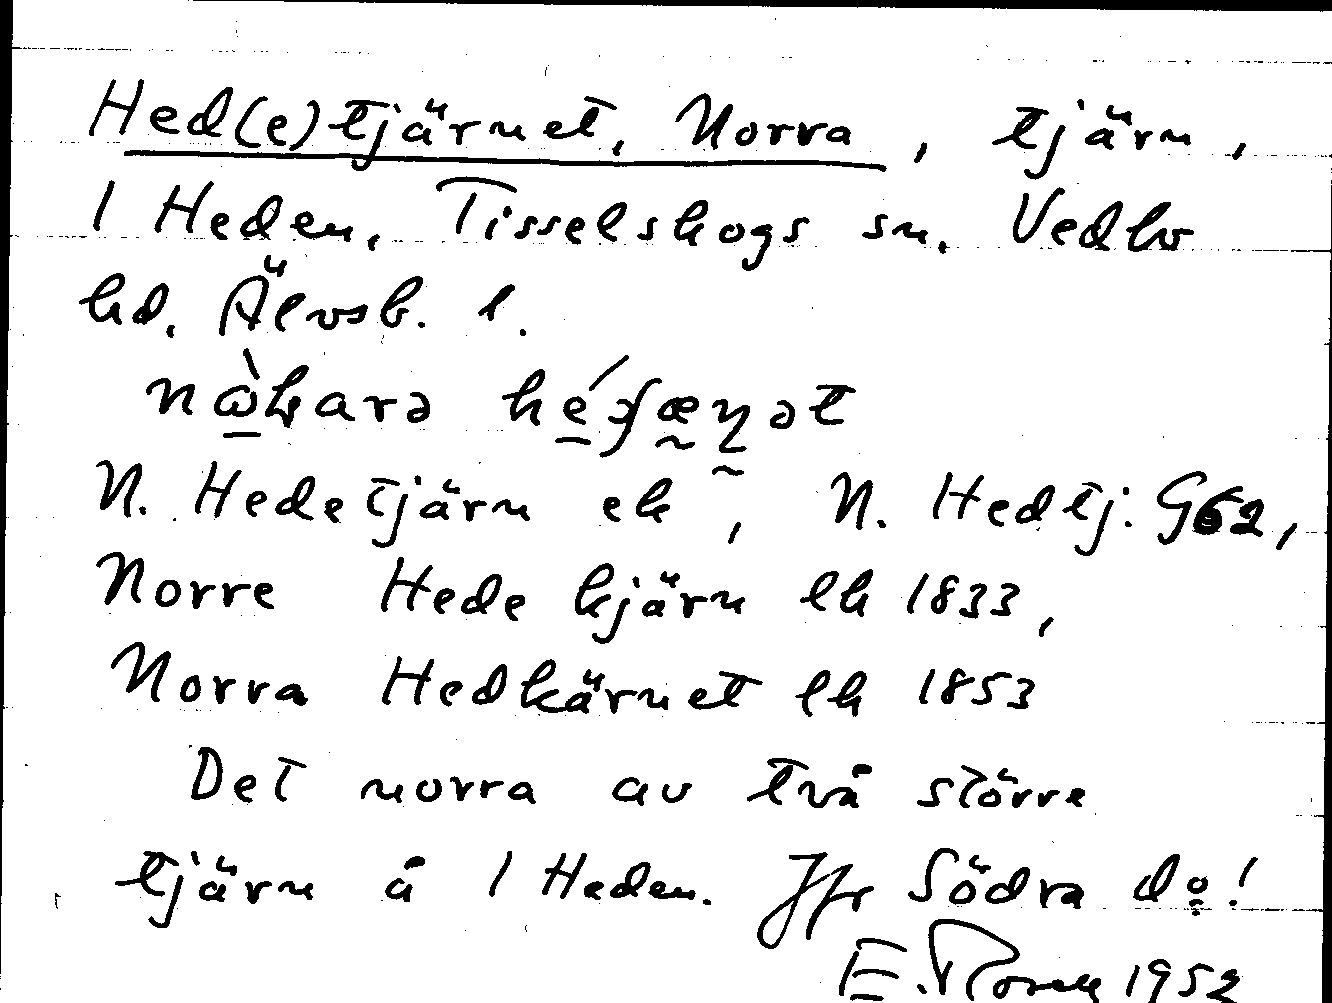 Hed(e)tjärnet, Norra, tjärn,
1 Heden, Tisselskogs sn, Vedbo
hd, Älvsb. l.
N. Hedetjärn ek, N. Hedtj. G62,
Norre Hede kjärn lk 1833,
Norra Hedkärnet lk 1853
Det norra av två större
tjärn å 1 Heden. Jfr Södra do!
E. 1952